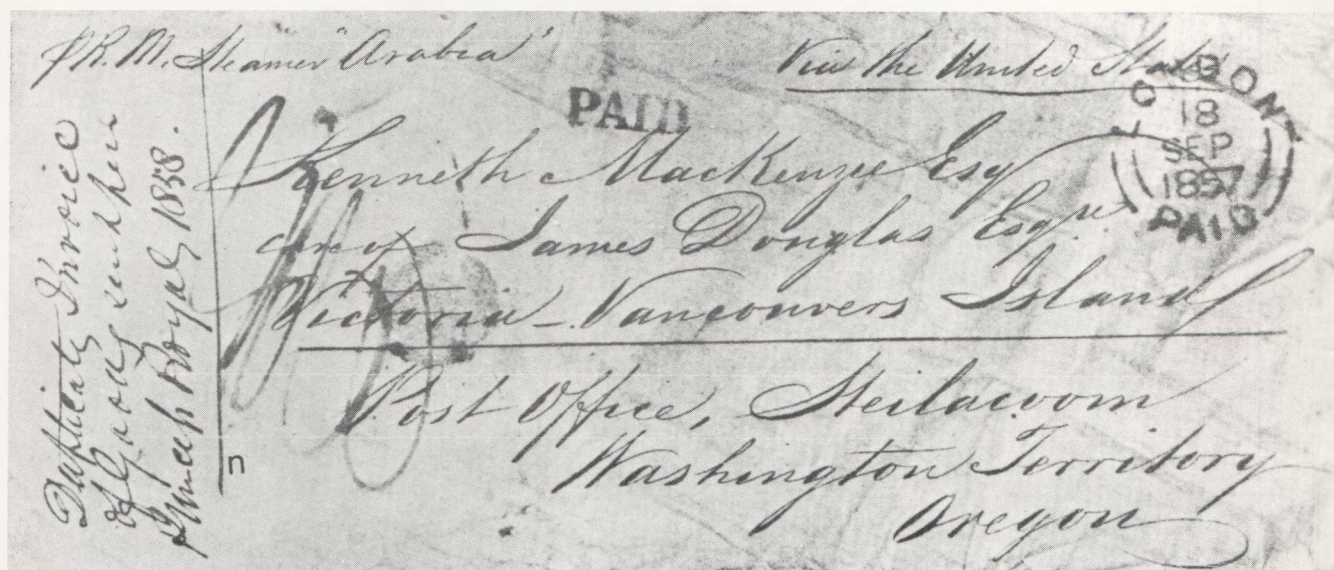 p R. M. Steamer "Arabia"
Via the United States
PAID
LONDON
18
SEP
1857
PAID
Kenneth MacKenzie Esq
care of James Douglas Esqre
Victoria - Vancouvers Island
Post Office, Steilacoom
Washington Territory
Oregon
Duplicate Invoice
of Goods sent per
Princess Royal, 1858.
n